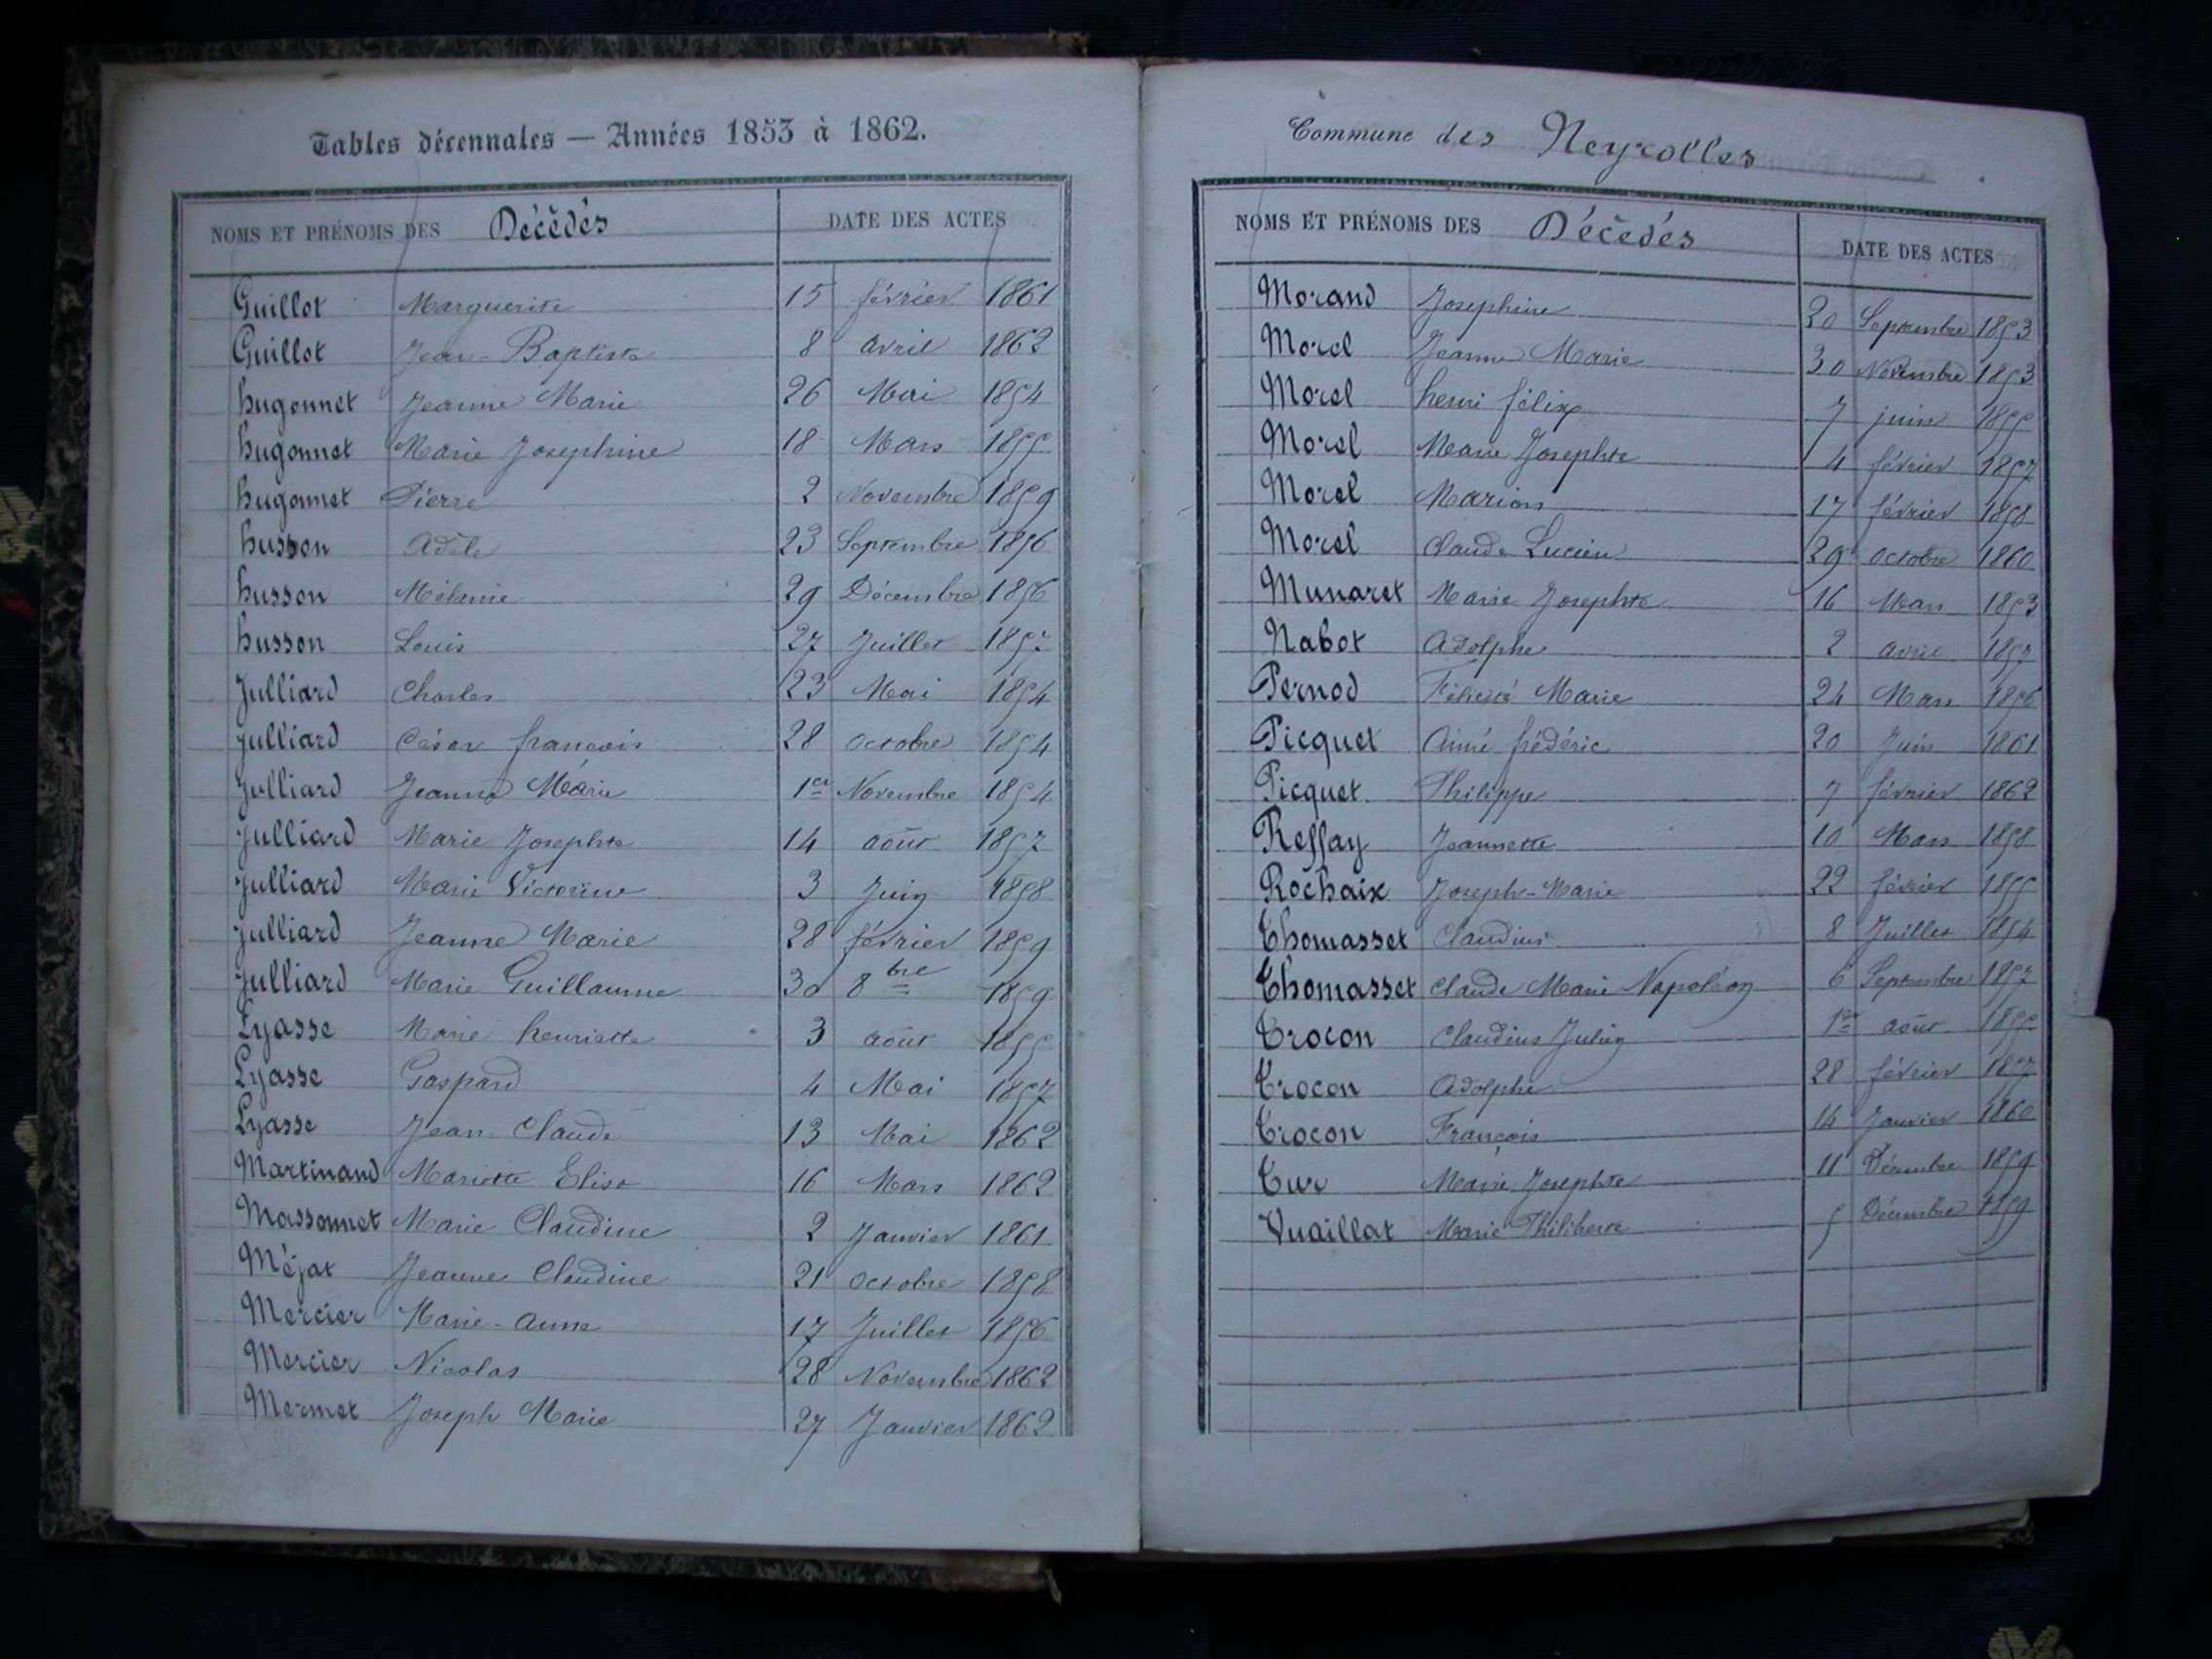 Tables décennales — Années 1853 à 1862.
NOMS ET PRÉNOMS DES Décédés DATE DES ACTES
Guillot Marguerite 15 février 1861
Guillot Jean-Baptiste 8 avril 1862
hugonnet Jeanne Marie 26 Mai 1854
hugonnet Marie Josephine 18 Mars 1855
hugonnet Pierre 2 Novembre 1859
husson Adèle 23 Septembre 1856
husson Mélanie 29 Décembre 1856
husson Louis 27 Juillet 1857
Julliard Charles 23 Mai 1854
Julliard César françois 28 octobre 1854
Julliard Jeanne Marie 1er Novembre 1854
Julliard Marie Josephte 14 août 1857
Julliard Marie Victorine 3 Juin 1858
Julliard Jeanne Marie 28 février 1859
Julliard Marie Guillaume 30 8bre 1859
Lyasse Marie henriette 3 août 1855
Lyasse Gaspard 4 Mai 1857
Lyasse Jean Claude 13 Mai 1862
Martinand Mariette Elise 16 Mars 1862
Massonnet Marie Claudine 2 Janvier 1861
Méjat Jeanne Claudine 21 octobre 1858
Mercier Marie-Anne 17 Juillet 1856
Mercier Nicolas 28 Novembre 1862
Mermet Joseph Marie 27 Janvier 1862
Commune des Neyrolles
NOMS ET PRÉNOMS DES Décédés DATE DES ACTES
Morand Josephine 20 Septembre 1853
Morel Jeanne Marie 30 Novembre 1853
Morel henri félix 7 juin 1855
Morel Marie Josephte 4 février 1857
Morel Marion 17 février 1858
Morel Claude Lucien 29 octobre 1860
Munaret Marie Josephte 16 Mars 1853
Nabot Adolphe 2 avril 1857
Pernod Félicité Marie 24 Mars 1856
Picquet Aimé frédéric 20 Juin 1861
Picquet Philippe 7 février 1862
Reffay Jeannette 10 Mars 1858
Rochaix Joseph-Marie 22 février 1855
Thomasset Claudius 8 Juillet 1854
Thomasset Claude Marie Napoléon 6 Septembre 1857
Trocon Claudius Julien 1er août 1855
Trocon Adolphe 28 février 1857
Trocon François 14 Janvier 1860
Turc Marie Josephte 11 Décembre 1859
Vuaillat Marie Philiberte 5 Décembre 1859